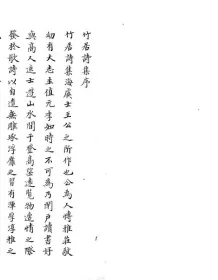 竹居詩集序
竹居詩集海虞士王公之所作也公為人博雅莊敬
幼有大志生值元季知時之不可為乃閉戶讀書好
與高人逸士遊山水間于登高望遠覽物適情之際
發於歌詩以自遣無雕琢浮靡之習有渾厚淳雅之